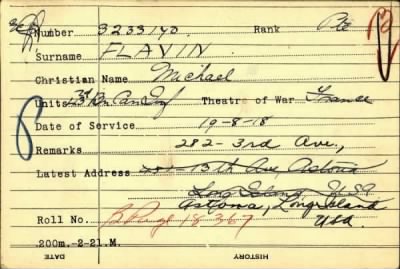 Number 3233140 Rank Pte
Surname FLAVIN
Christian Name Michael
Units Bn Can Inf Theatre of War France
Date of Service 19-8-18
Remarks 282-3rd Ave,
Latest Address 15th Ave Astoria
Long Island
Astoria, Long Island
Roll No. B Page 18367 USA
200m.-2-21.M.
DATE HISTORY